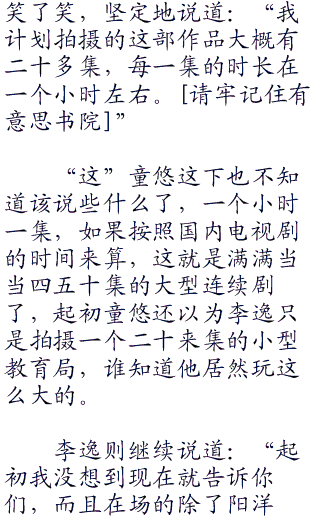 笑了笑，坚定地说道：“我
计划拍摄的这部作品大概有
二十多集，每一集的时长在
一个小时左右。[请牢记住有
意思书院]”
“这”童悠这下也不知
道该说些什么了，一个小时
一集，如果按照国内电视剧
的时间来算，这就是满满当
当四五十集的大型连续剧
了，起初童悠还以为李逸只
是拍摄一个二十来集的小型
教育局，谁知道他居然玩这
么大的。
李逸则继续说道：“起
初我没想到现在就告诉你
们，而且在场的除了阳洋